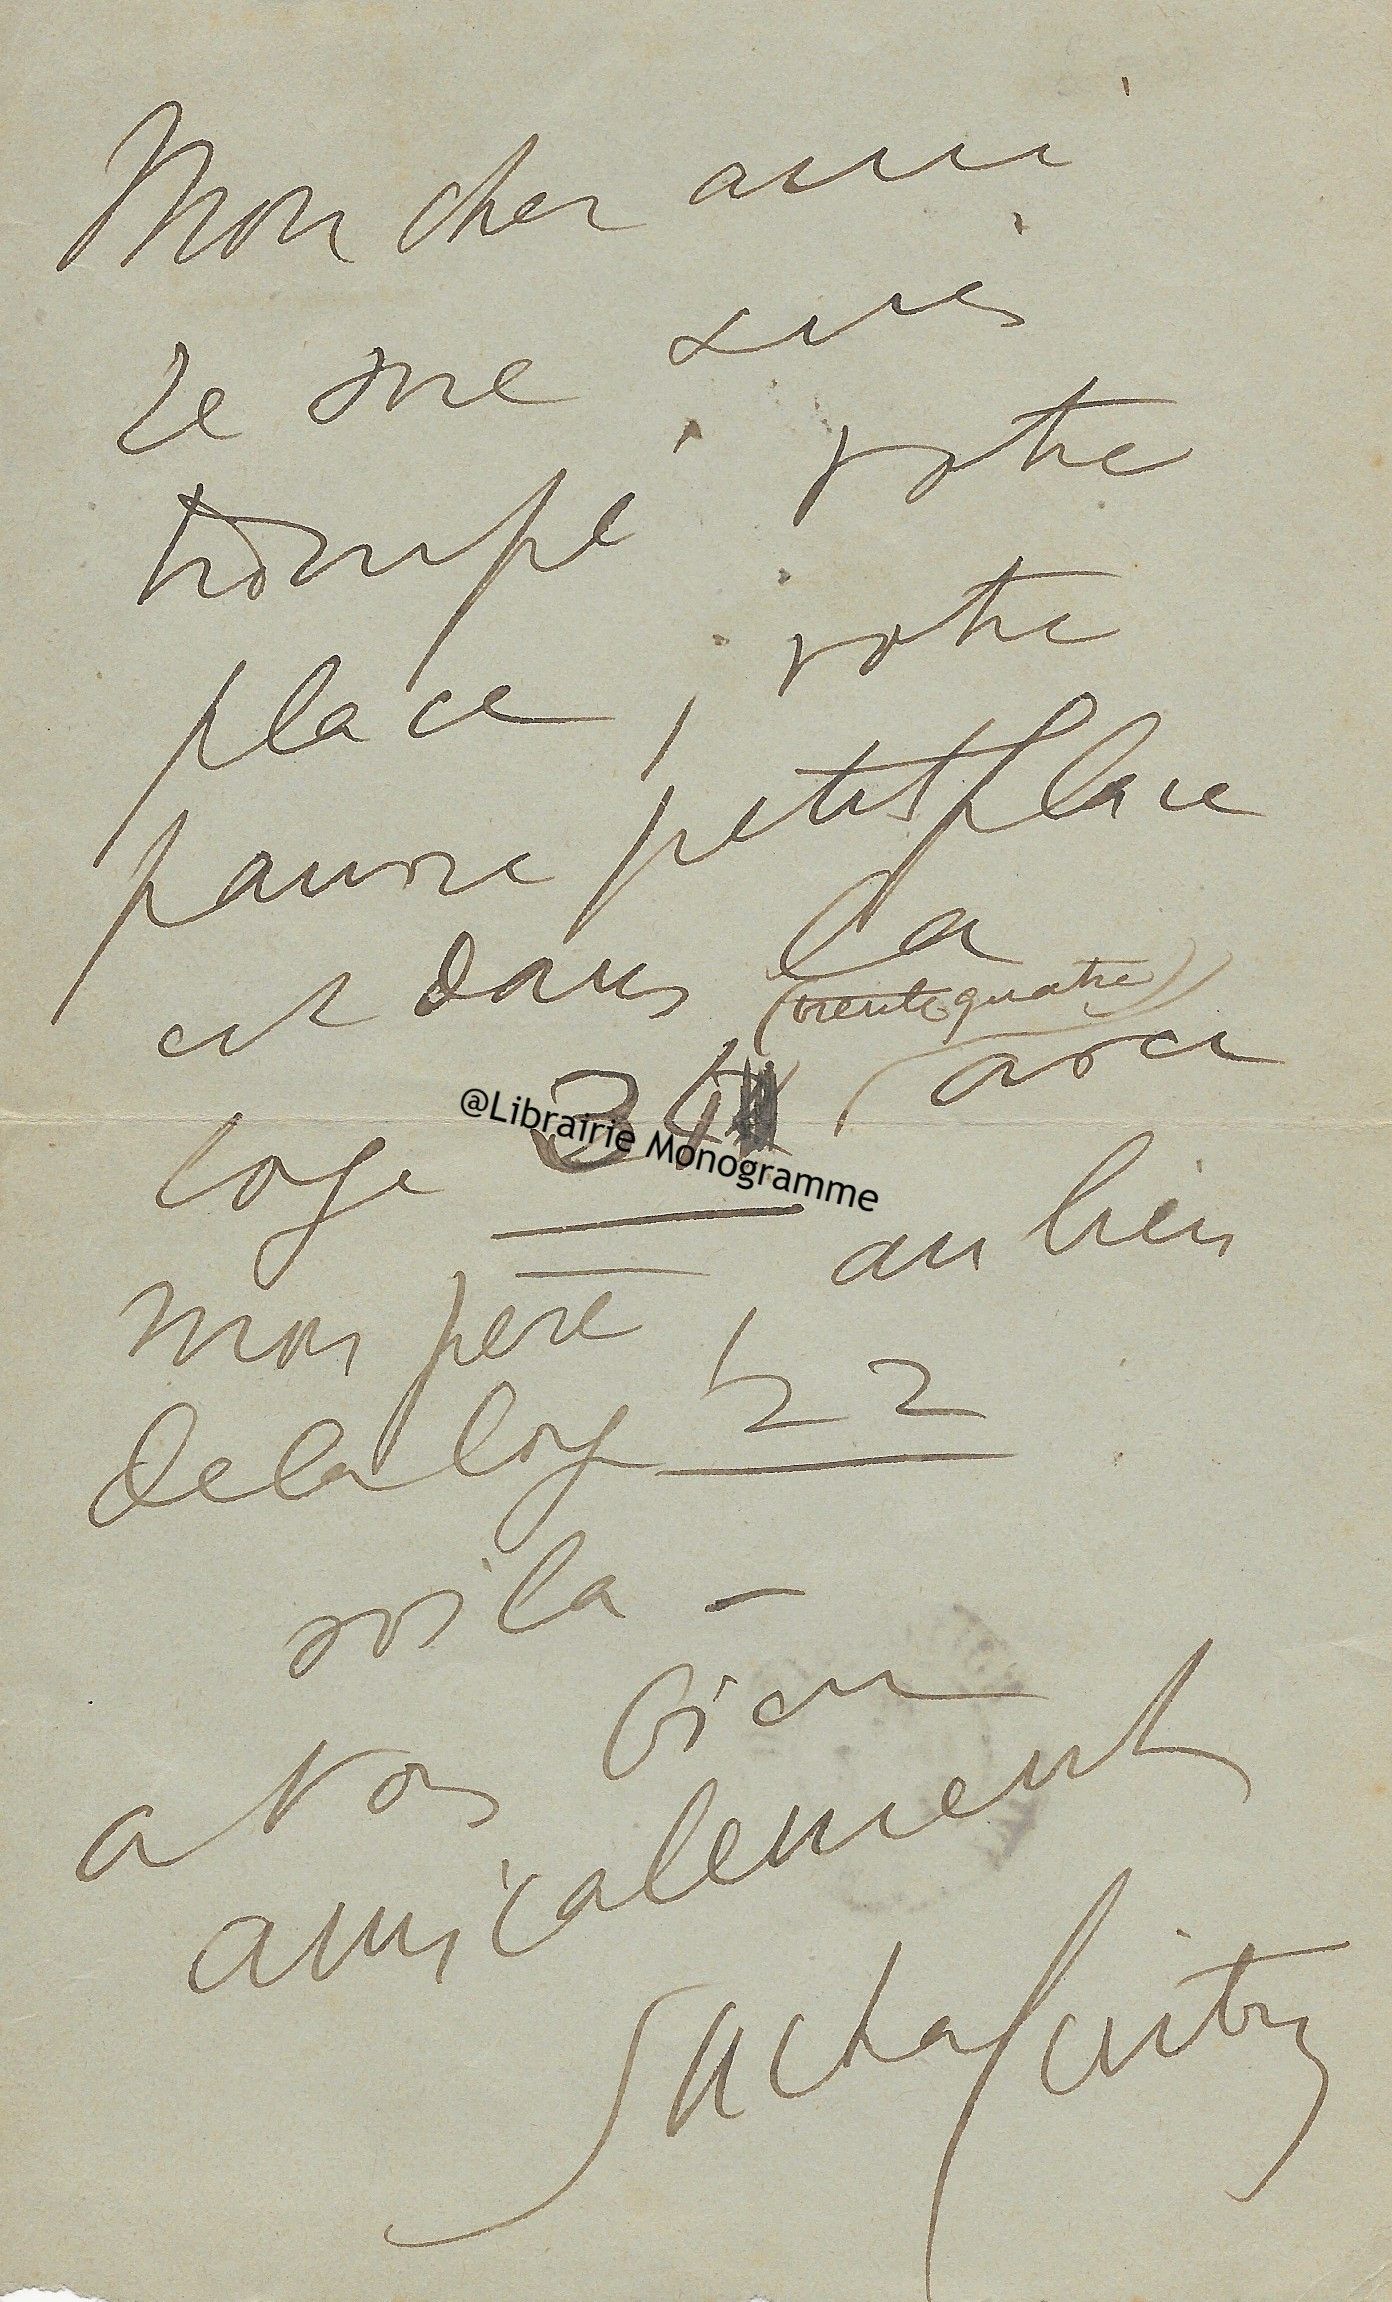 Mon cher ami
Je me suis
trompé votre
place, votre
pauvre petite place
est dans la
(trente quatre)
loge 34 avec
@Librairie Monogramme
mon père, au lieu
de la loge 22
voilà –
a vous bien
amicalement
Sacha Guitry